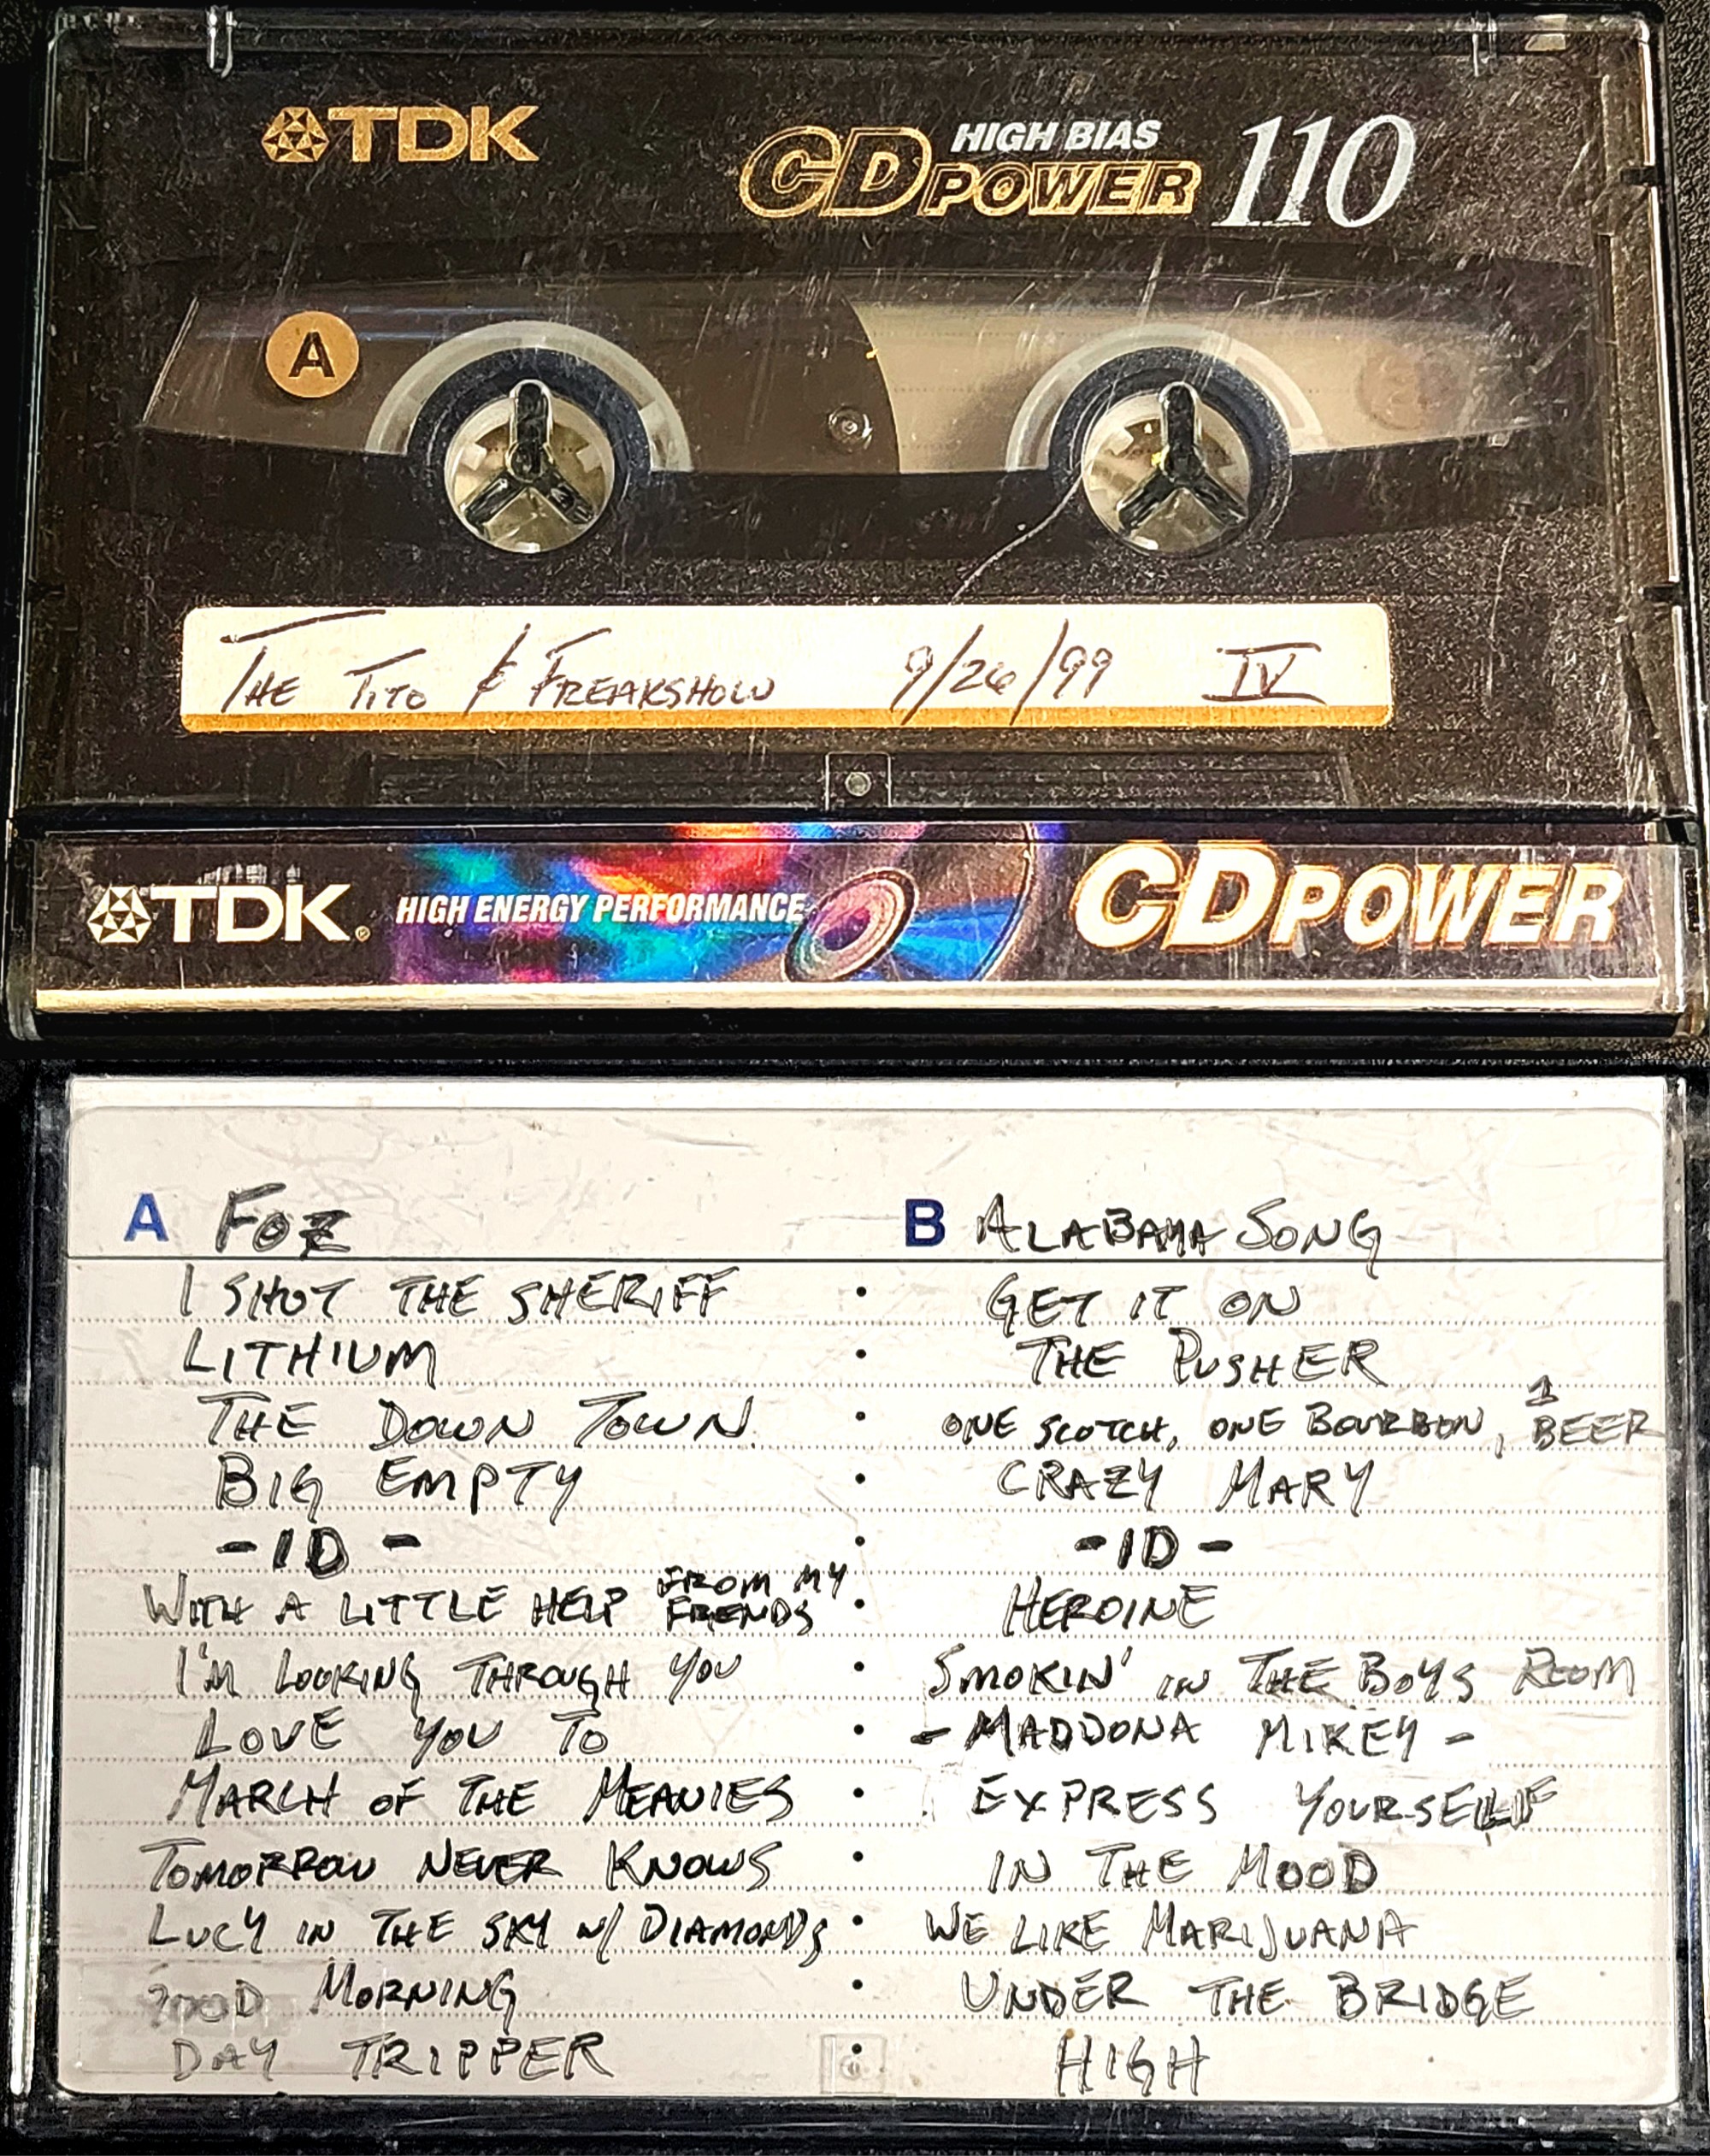 TDK
HIGH BIAS
CD POWER 110
A
THE TITO & FREAKSHOW 9/26/99 IV
TDK® HIGH ENERGY PERFORMANCE CD POWER
A FOZ
I SHOT THE SHERIFF
LITHIUM
THE DOWN TOWN
BIG EMPTY
- ID -
WITH A LITTLE HELP FROM MY FRENDS
I'M LOOKING THROUGH YOU
LOVE YOU TO
MARCH OF THE MEANIES
TOMORROW NEVER KNOWS
LUCY IN THE SKY W/ DIAMONDS
GOOD MORNING
DAY TRIPPER
B ALABAMA SONG
GET IT ON
THE PUSHER
ONE SCOTCH, ONE BOURBON, 1 BEER
CRAZY MARY
- ID -
HEROINE
SMOKIN' IN THE BOYS ROOM
- MADDONA MIKEY -
EXPRESS YOURSELF
IN THE MOOD
WE LIKE MARIJUANA
UNDER THE BRIDGE
HIGH